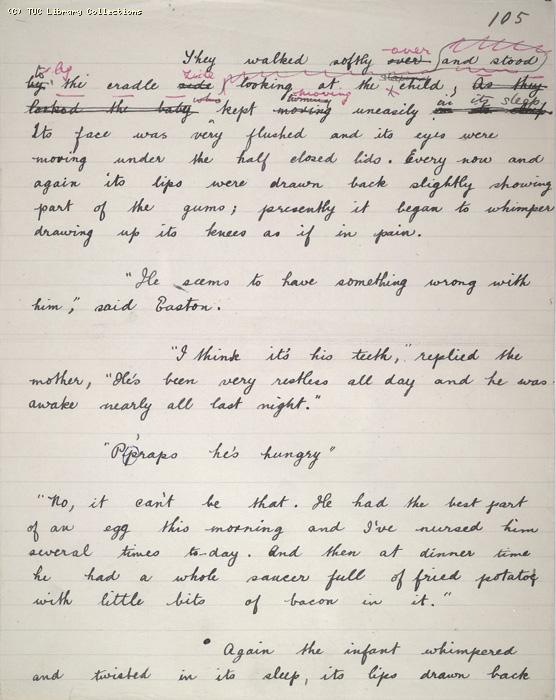 (C) TUC Library Collections
105
They walked softly over over (and stood
to by by the cradle side side looking at the child, As they
looked the baby who kept moving moving uneasily in its sleep,
Its face was very flushed and its eyes were
moving under the half closed lids. Every now and
again its lips were drawn back slightly showing
part of the gums; presently it began to whimper
drawing up its knees as if in pain.
"He seems to have something wrong with
him," said Easton.
"I think it's his teeth," replied the
mother, "He's been very restless all day and he was
awake nearly all last night."
"P'raps he's hungry"
"No, it can't be that. He had the best part
of an egg this morning and I've nursed him
several times to-day. And then at dinner time
he had a whole saucer full of fried potatoes
with little bits of bacon in it."
Again the infant whimpered
and twisted in its sleep, its lips drawn back